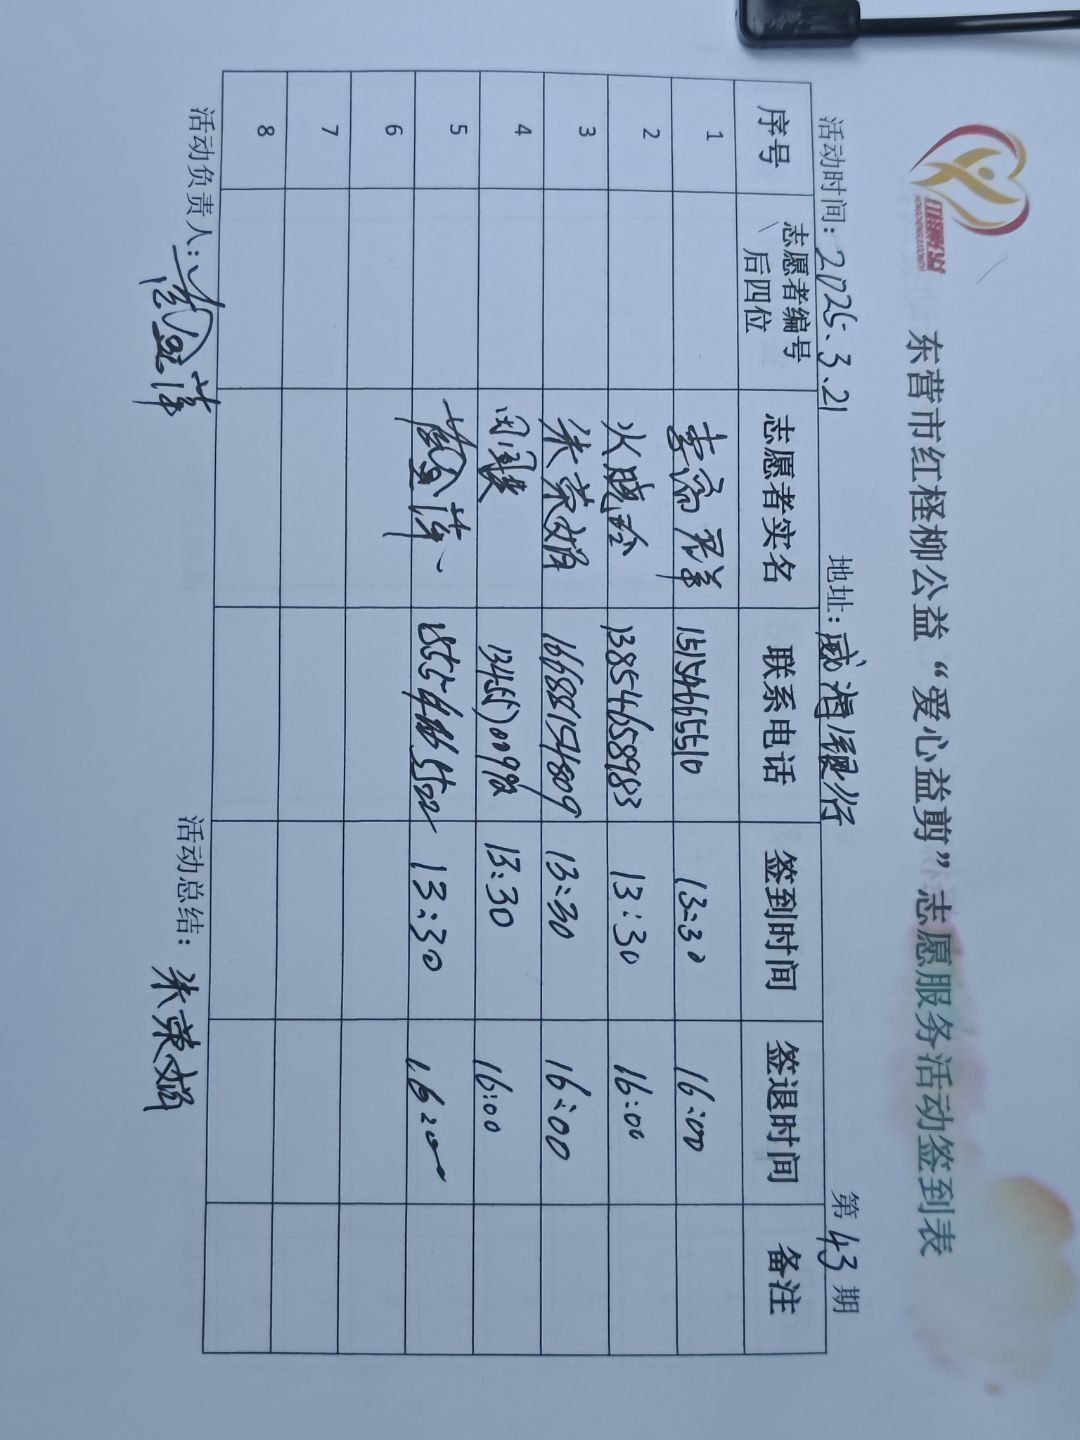 东营市红柽柳公益“爱心益剪”志愿服务活动签到表
活动时间：2025.3.21 地址：威海银行 第43期
序号 志愿者编号后四位 志愿者实名 联系电话 签到时间 签退时间 备注
1 15154665510 13:30 16:00
2 13854658983 13:30 16:00
3 朱荣娟 16688154809 13:30 16:00
4 13:30 16:00
5 13:30 16:00
6
7
8
活动负责人： 活动总结：朱荣娟